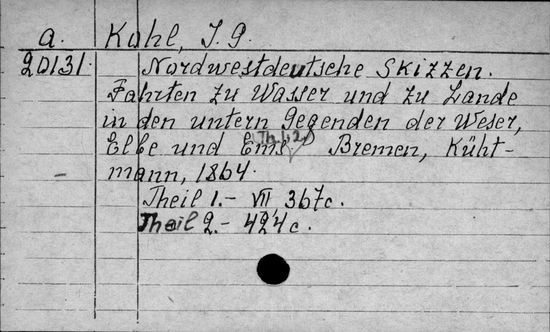 a. Kohl, J. G.
20131. Nordwestdeutsche Skizzen.
Fahrten zu Wasser und zu Lande
in den untern Gegenden der Weser,
Elbe und Ems. (Th. 1.2.) Bremen, Küht-
mann, 1864.
Theil 1.- VII, 367c.
Theil 2.- 424c.